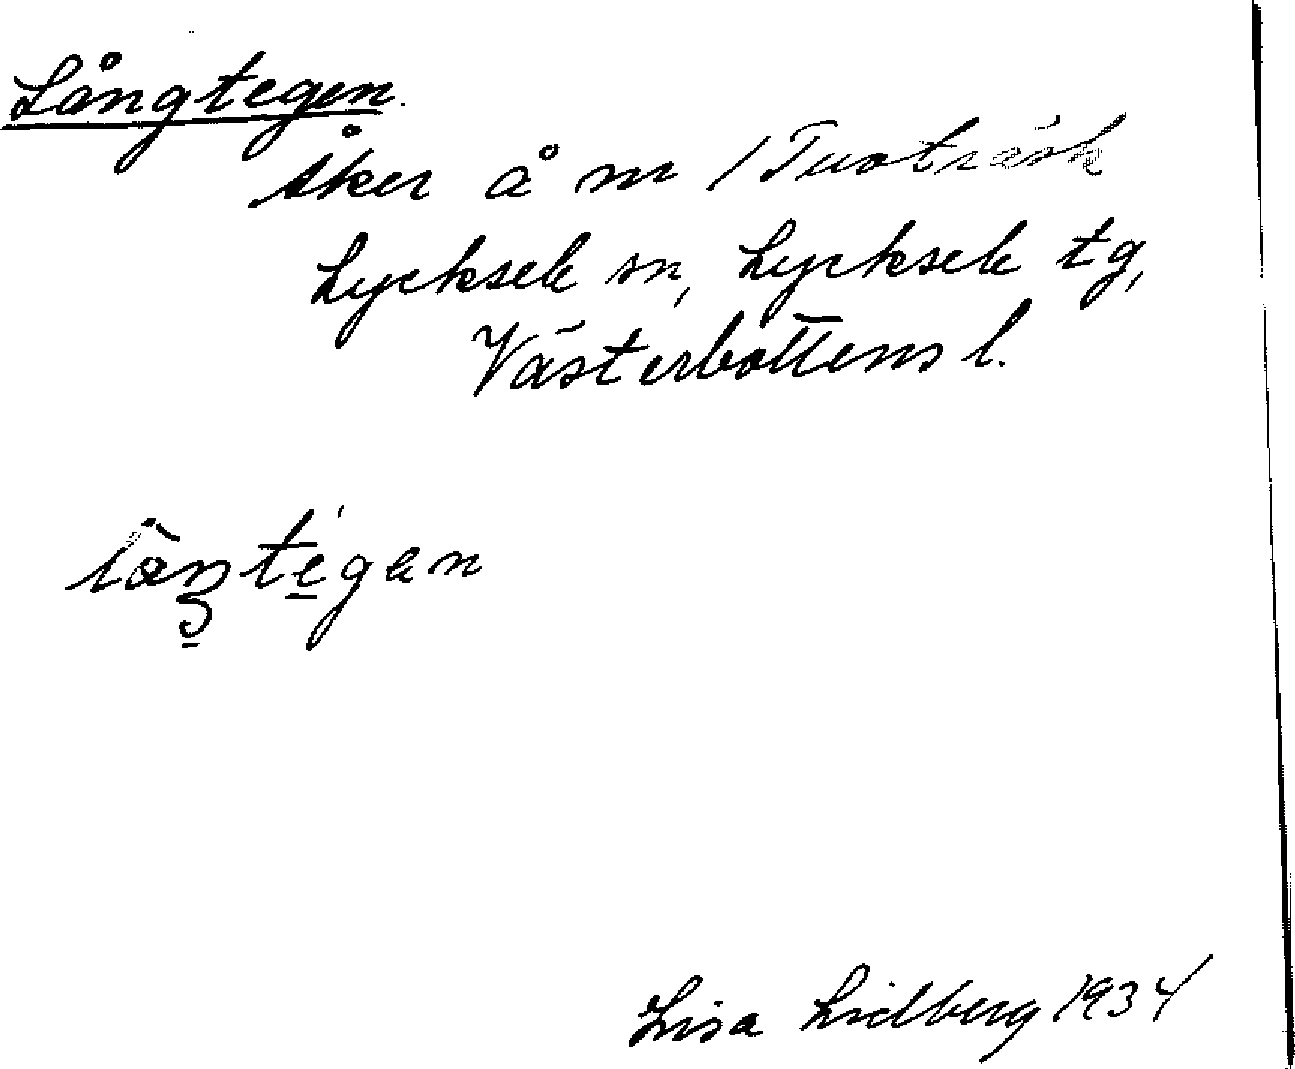 Långtegen.
Åker å nr 1 Tuvträsk
Lycksele sn, Lycksele tg,
Västerbottens l.
Lisa Lidberg 1934